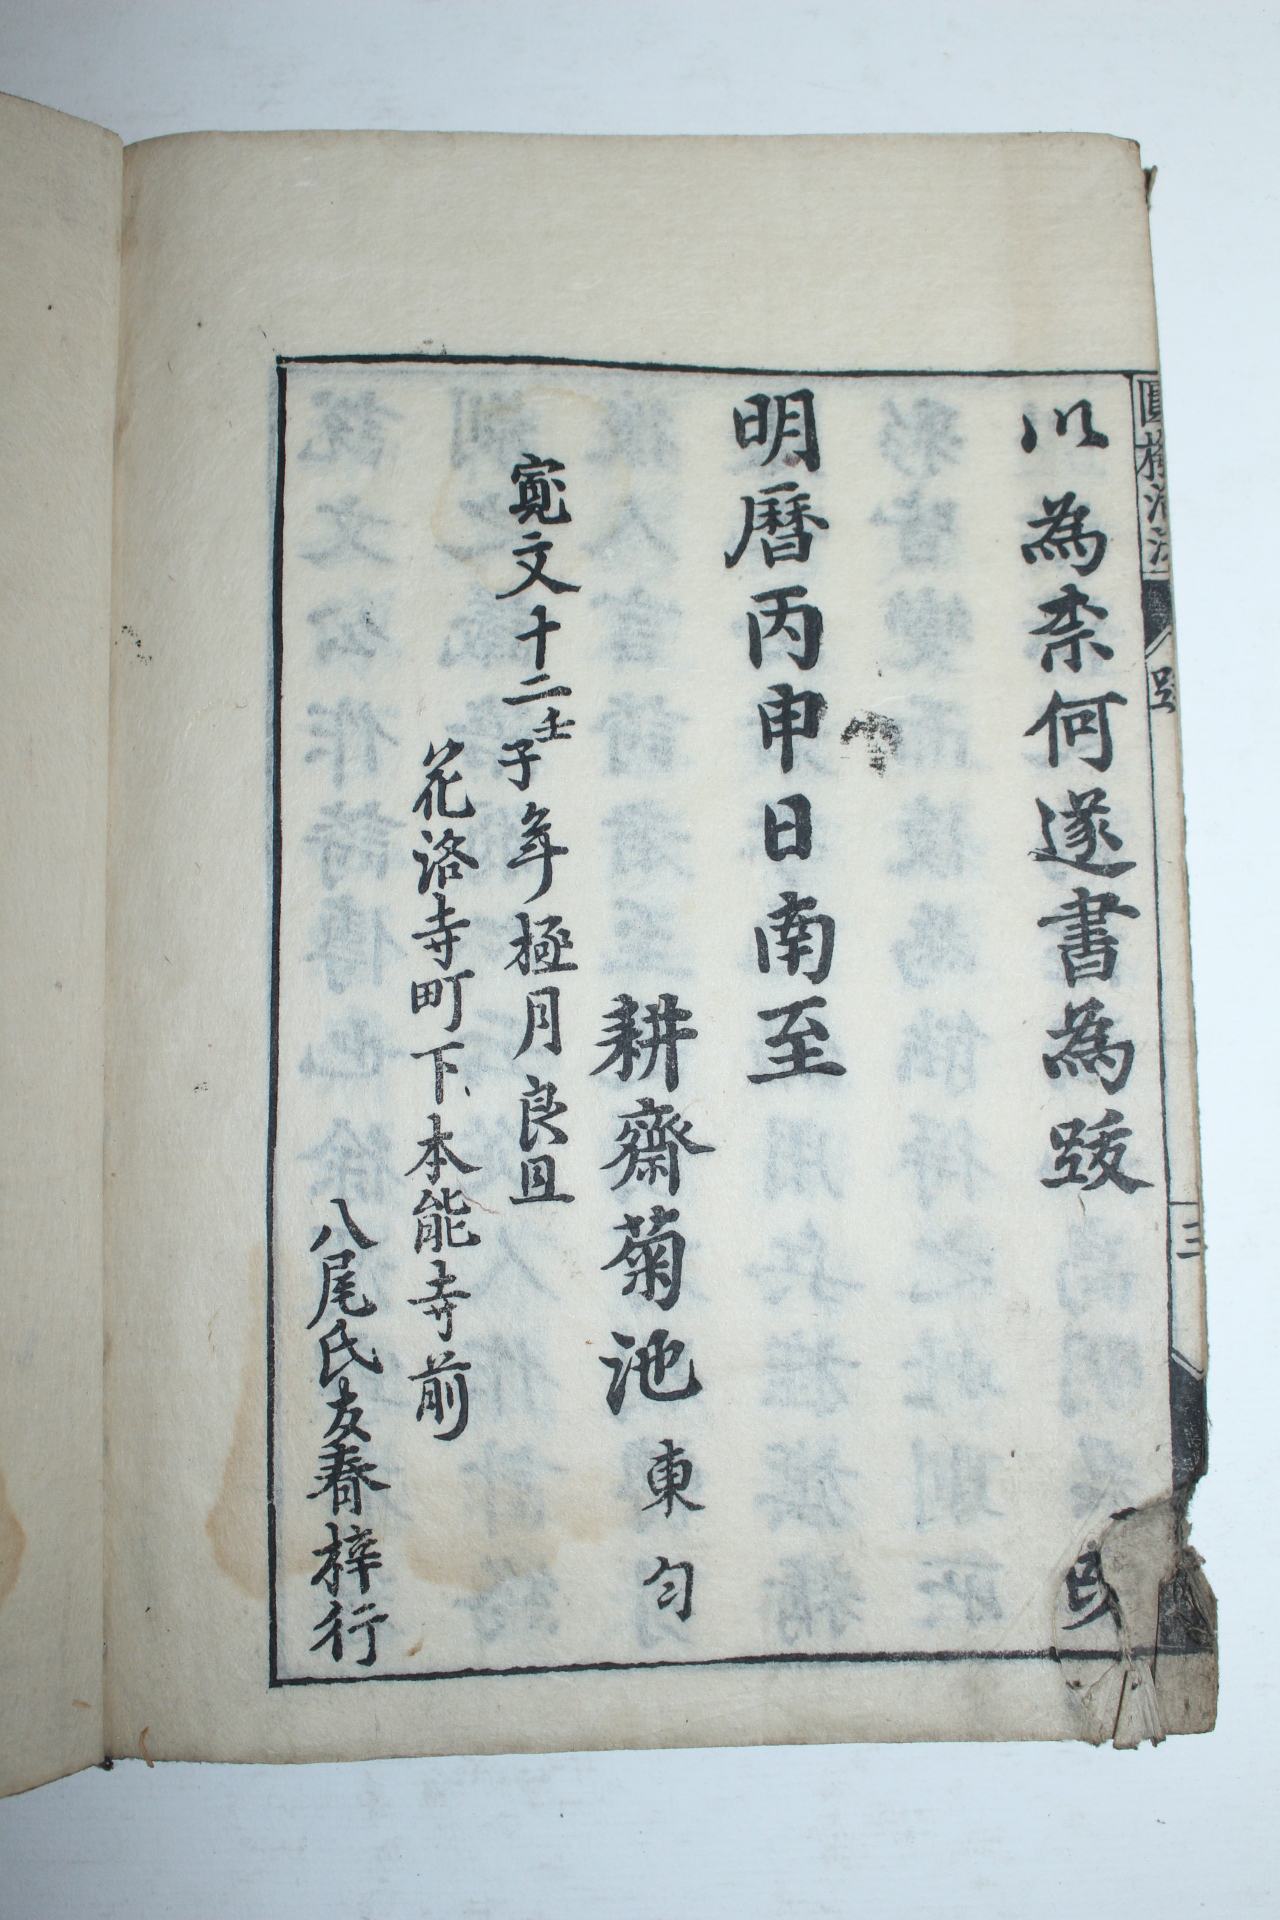 以為柰何遂書為跋
明暦丙申日南至
耕齋菊池東匀
寛文十二壬子年極月良旦
花洛寺町下本能寺前
八尾氏友春梓行
跋
三